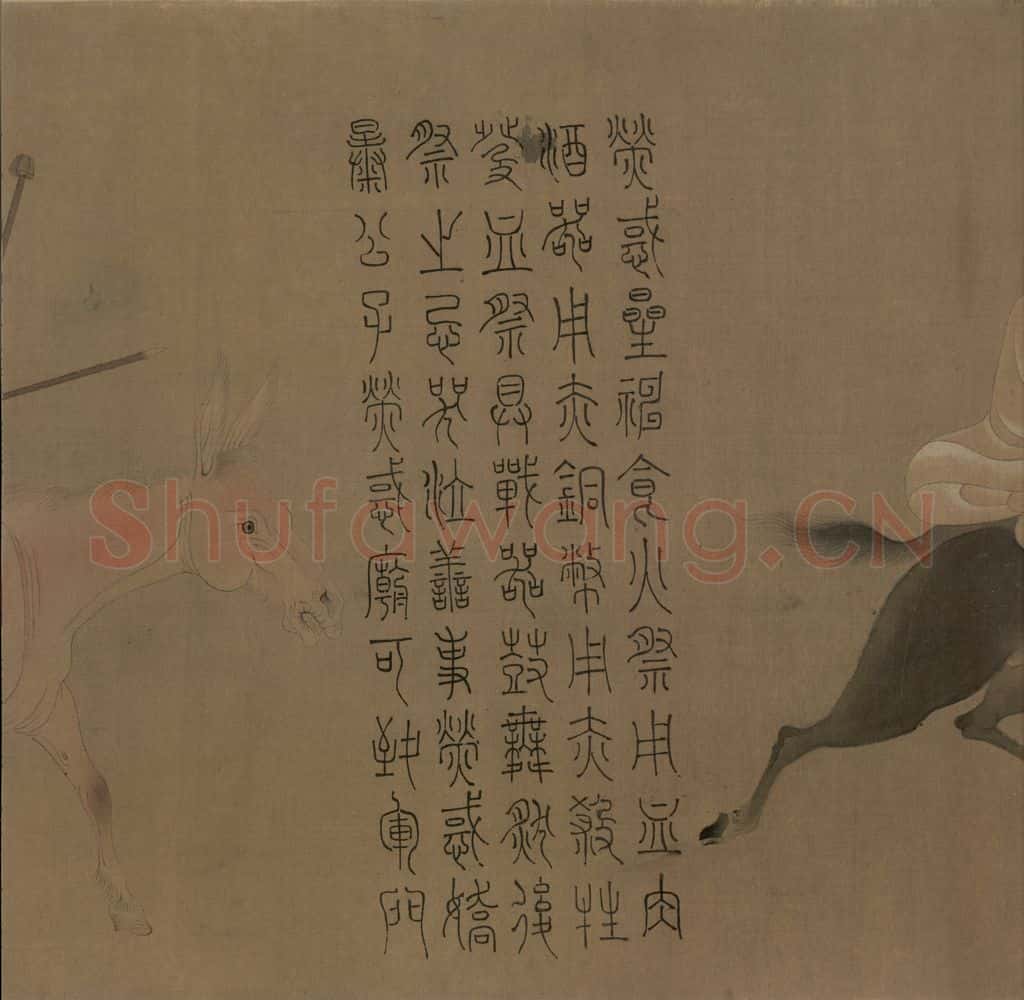 熒惑星神食火祭用血肉
酒器用赤銅幣用赤殺牲
血祭具戰器鼓舞然後
祭之忌哭泣善事熒惑嬌
暴公子熒惑廟可致軍門
Shufawang.CN